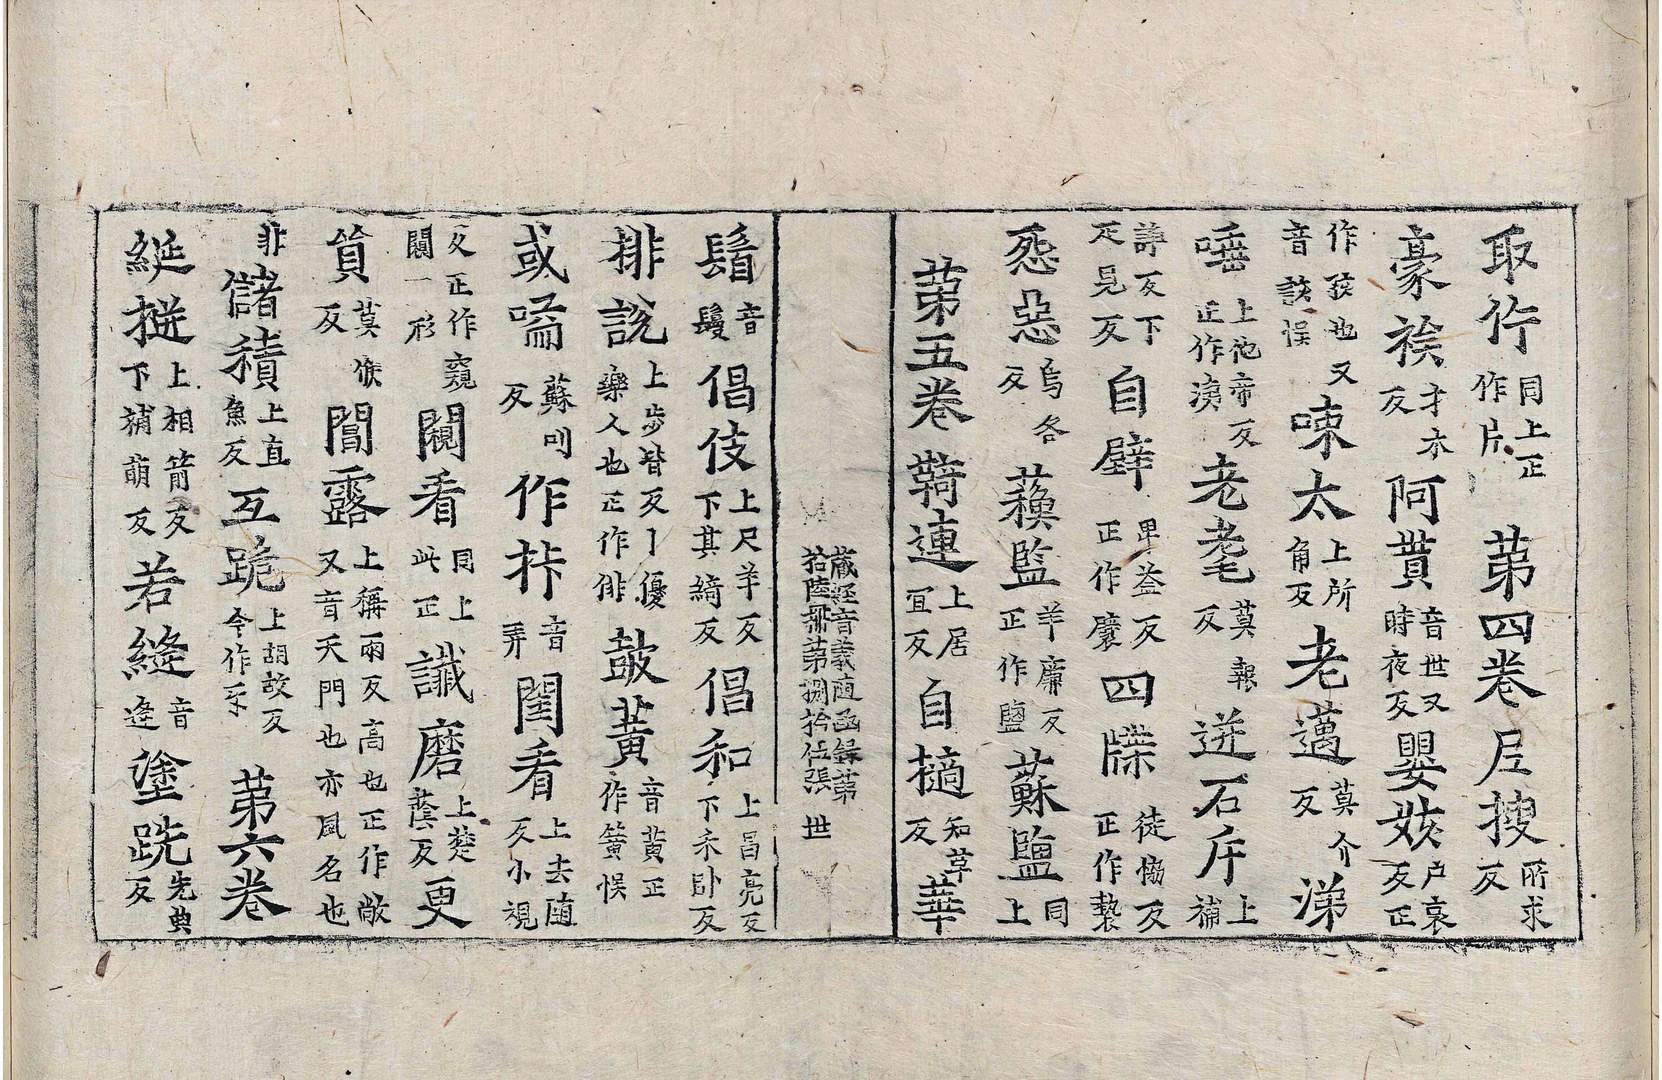 取竹同上正作片第四卷𡱈搜所求反
豪褛才木反阿貰音世又時夜反嬰姟户哀反正
作孩也又音該悮㖒太上所角反老邁莫介反涕
唾上他帝反正作洟老耄莫報反迸石斤上補
諍反下疋見反自躃卑益反正作躄四牒徒協反正作褺
惡惡烏各反蘓監羊廉反正作鹽蘇鹽上同
第五卷鞿連上居宜反自擿知革反華
藏經音義隨函録第
拾陸冊第捌拾伍張 世
鬚音鬘倡伎上尺羊反下其綺反倡和上昌亮反下禾卧反
排説上步皆反丨優樂人也正作俳鼓黄音黄正作簧悮
或嗍蘇𠯗反作挊音弄闺看上去随反小視
反正作窺闚一形闚看同上此正讖磨上楚蔭反更
貿莫候反閶露上稱兩反高也正作敞又音天門也亦風名也
非儲積上直魚反互跪上胡故反今作𠄔第六卷
綖搓上相箭反下補萌反若縫音逢塗跣先典反